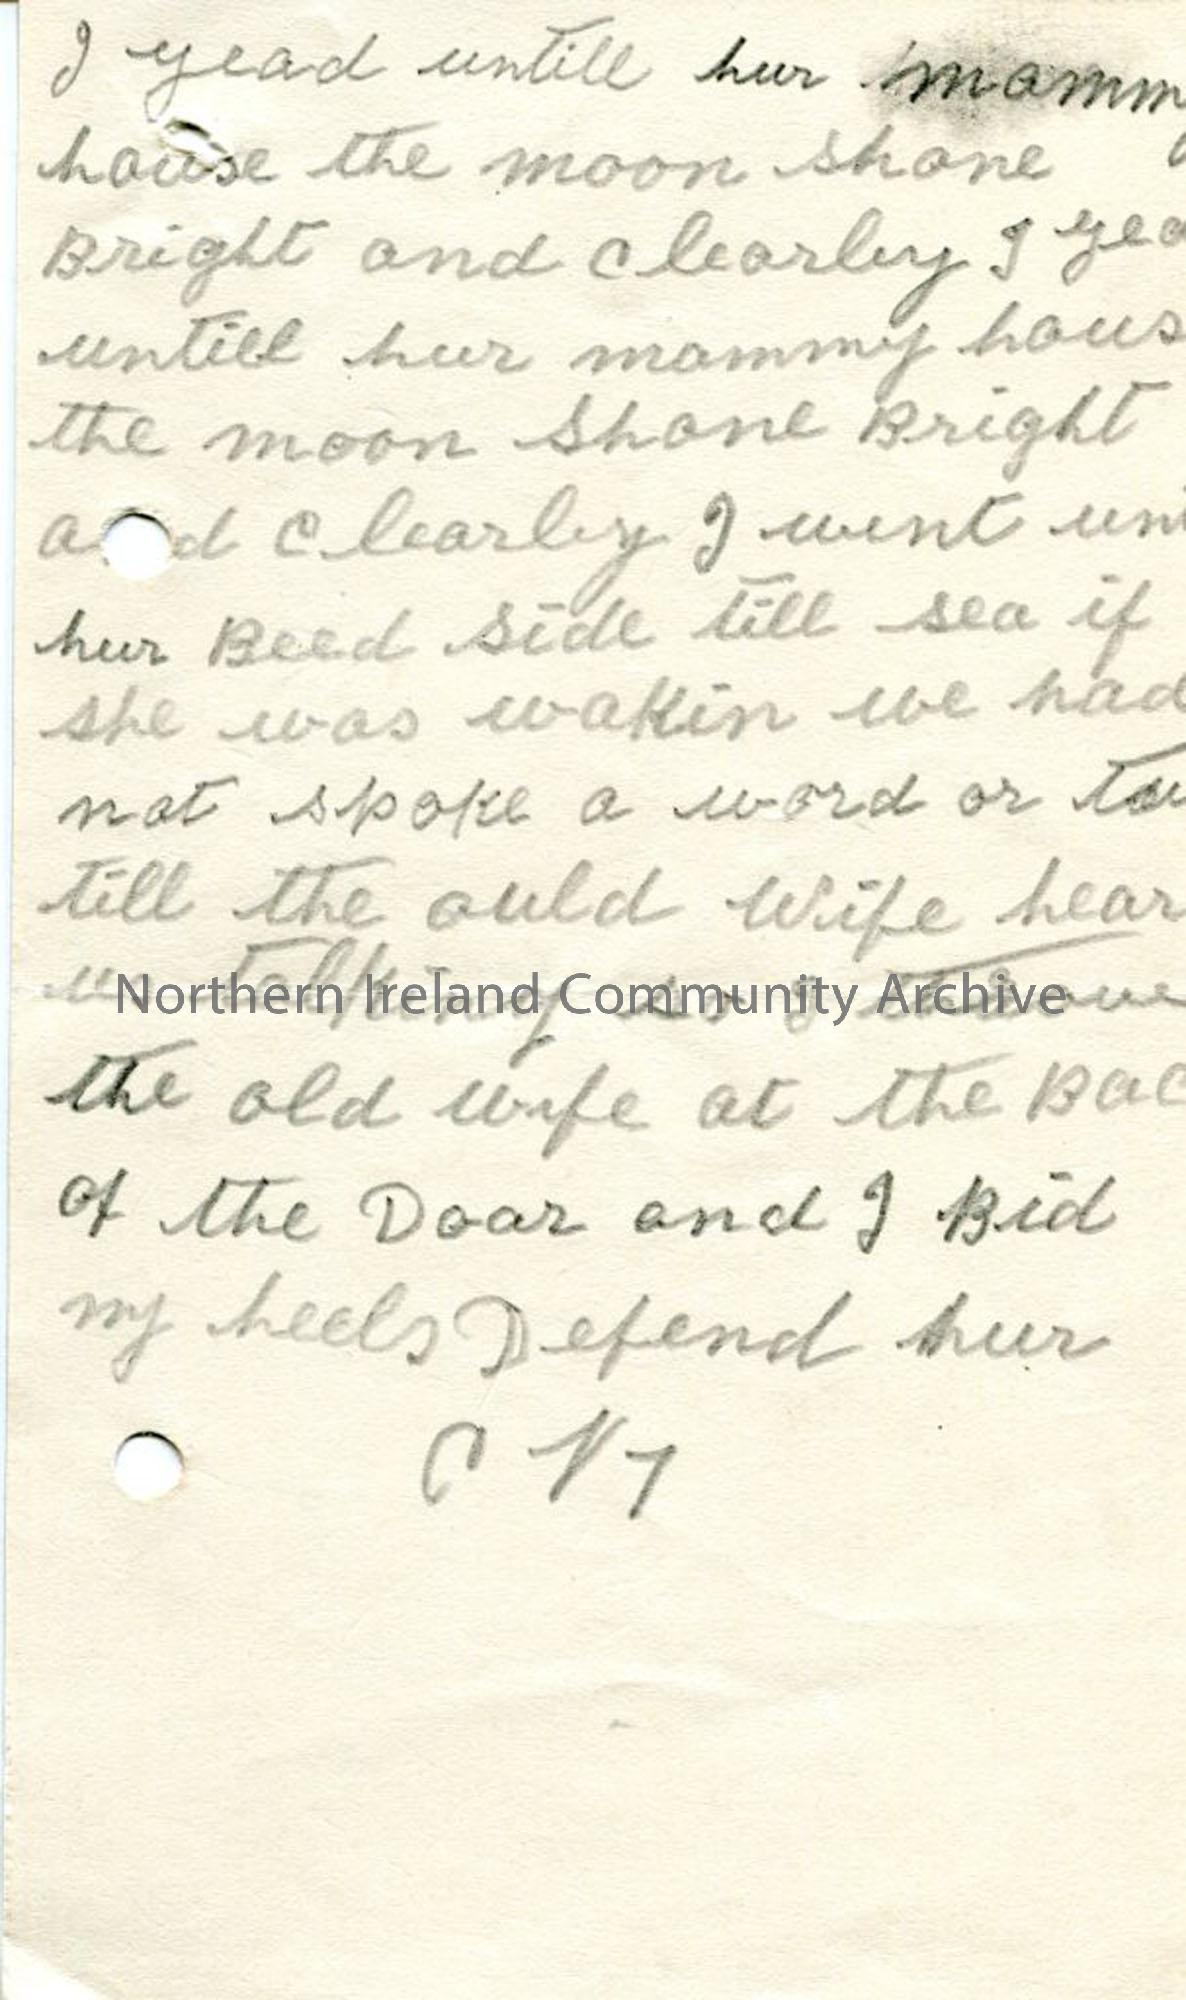 I yead untill hur mammy
house the moon shone
Bright and clearley I yea
untill hur mammy hous
the moon Shone Bright
and clearley I went unt
hur Beed Side till sea if
she was wakin we had
not spoke a word or tw
till the ould Wife hear
us talking so I
Northern Ireland Community Archive
the old wife at the Bac
of the Doar and I Bid
my heels Defend hur